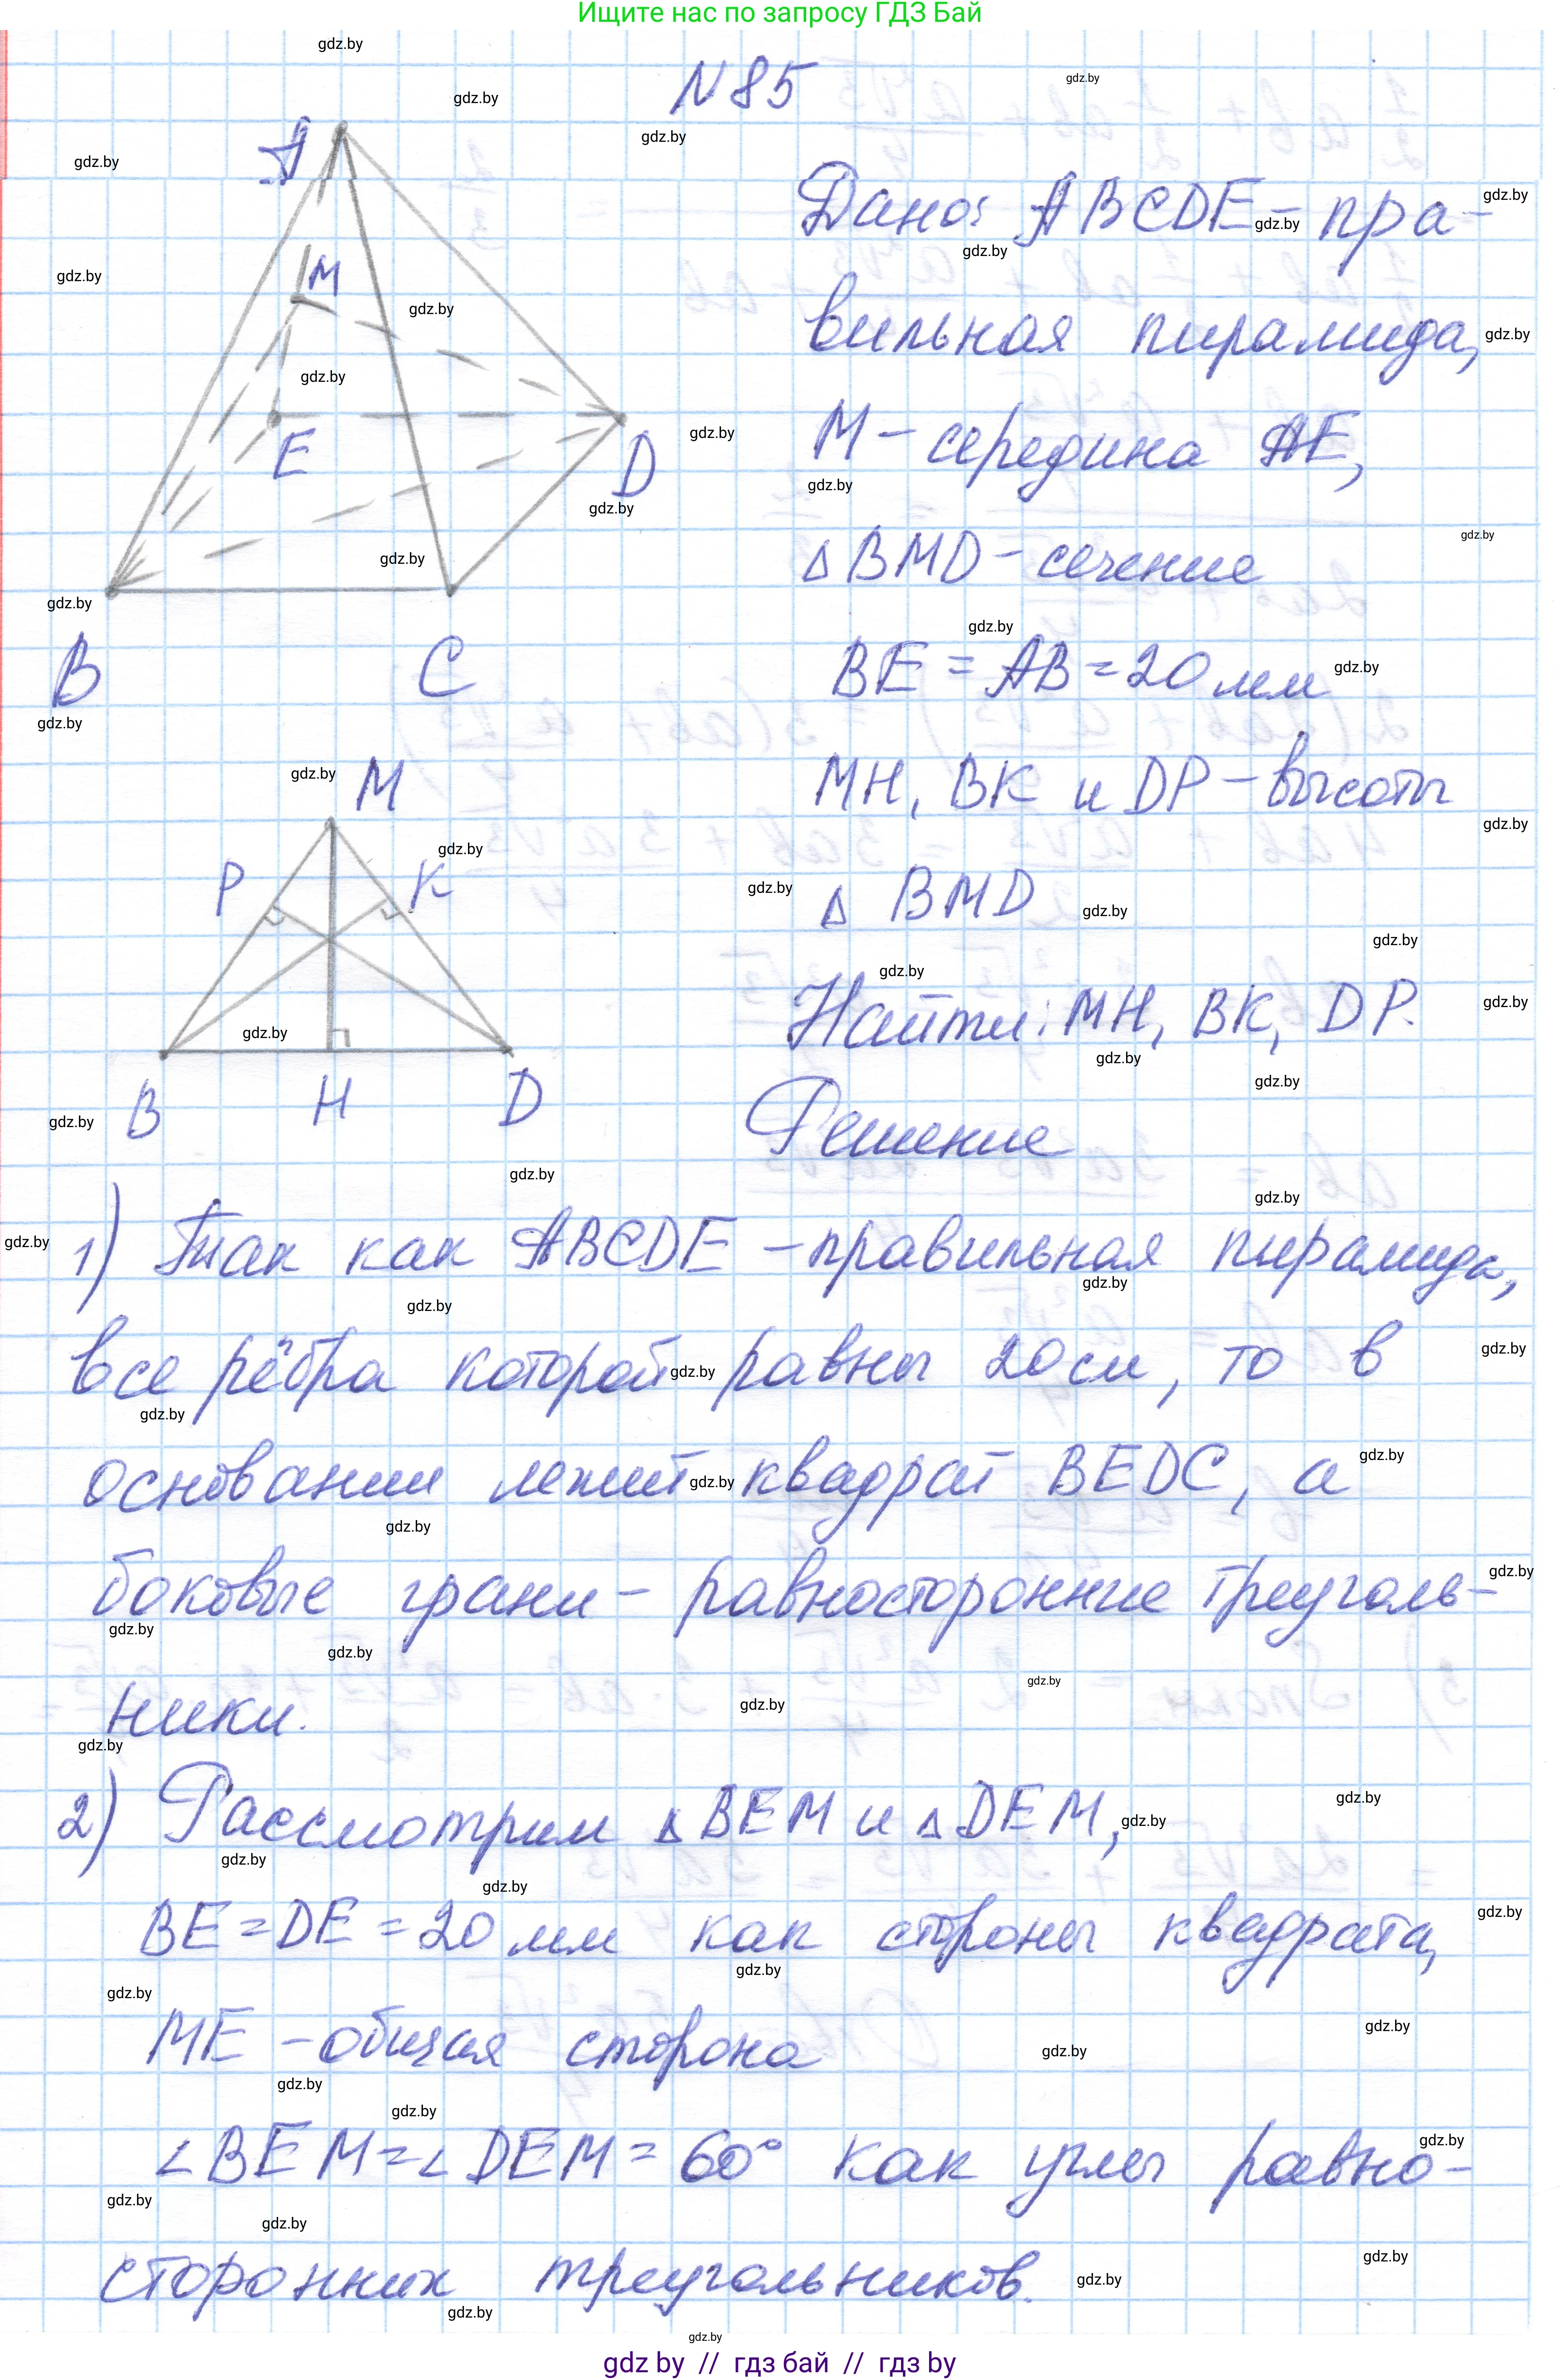 Ищите нас по запросу ГДЗ Бай
N 85
Дано: ABCDE – пра-
вильная пирамида,
M – середина AE,
△ BMD – сечение
BE = AB = 20 мм
MH, BK и DP – высоты
△ BMD
Найти: MH, BK, DP.
A
M
E
D
B
C
M
P
K
B
H
D
Решение
1) Так как ABCDE – правильная пирамида,
все рёбра которой равны 20 см, то в
основании лежит квадрат BEDC, а
боковые грани – равносторонние треуголь-
ники.
2) Рассмотрим △ BEM и △ DEM,
BE = DE = 20 мм как стороны квадрата,
ME – общая сторона
∠BEM = ∠DEM = 60° как углы равно-
сторонних треугольников.
gdz.by
gdz by // гдз бай // гдз by